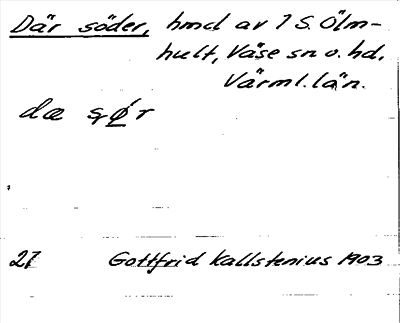 Där söder, hmd av 1 S. Ölm-
hult, Väse sn o. hd,
Värml. län.
dœ sǿr
27 Gottfrid Kallstenius 1903